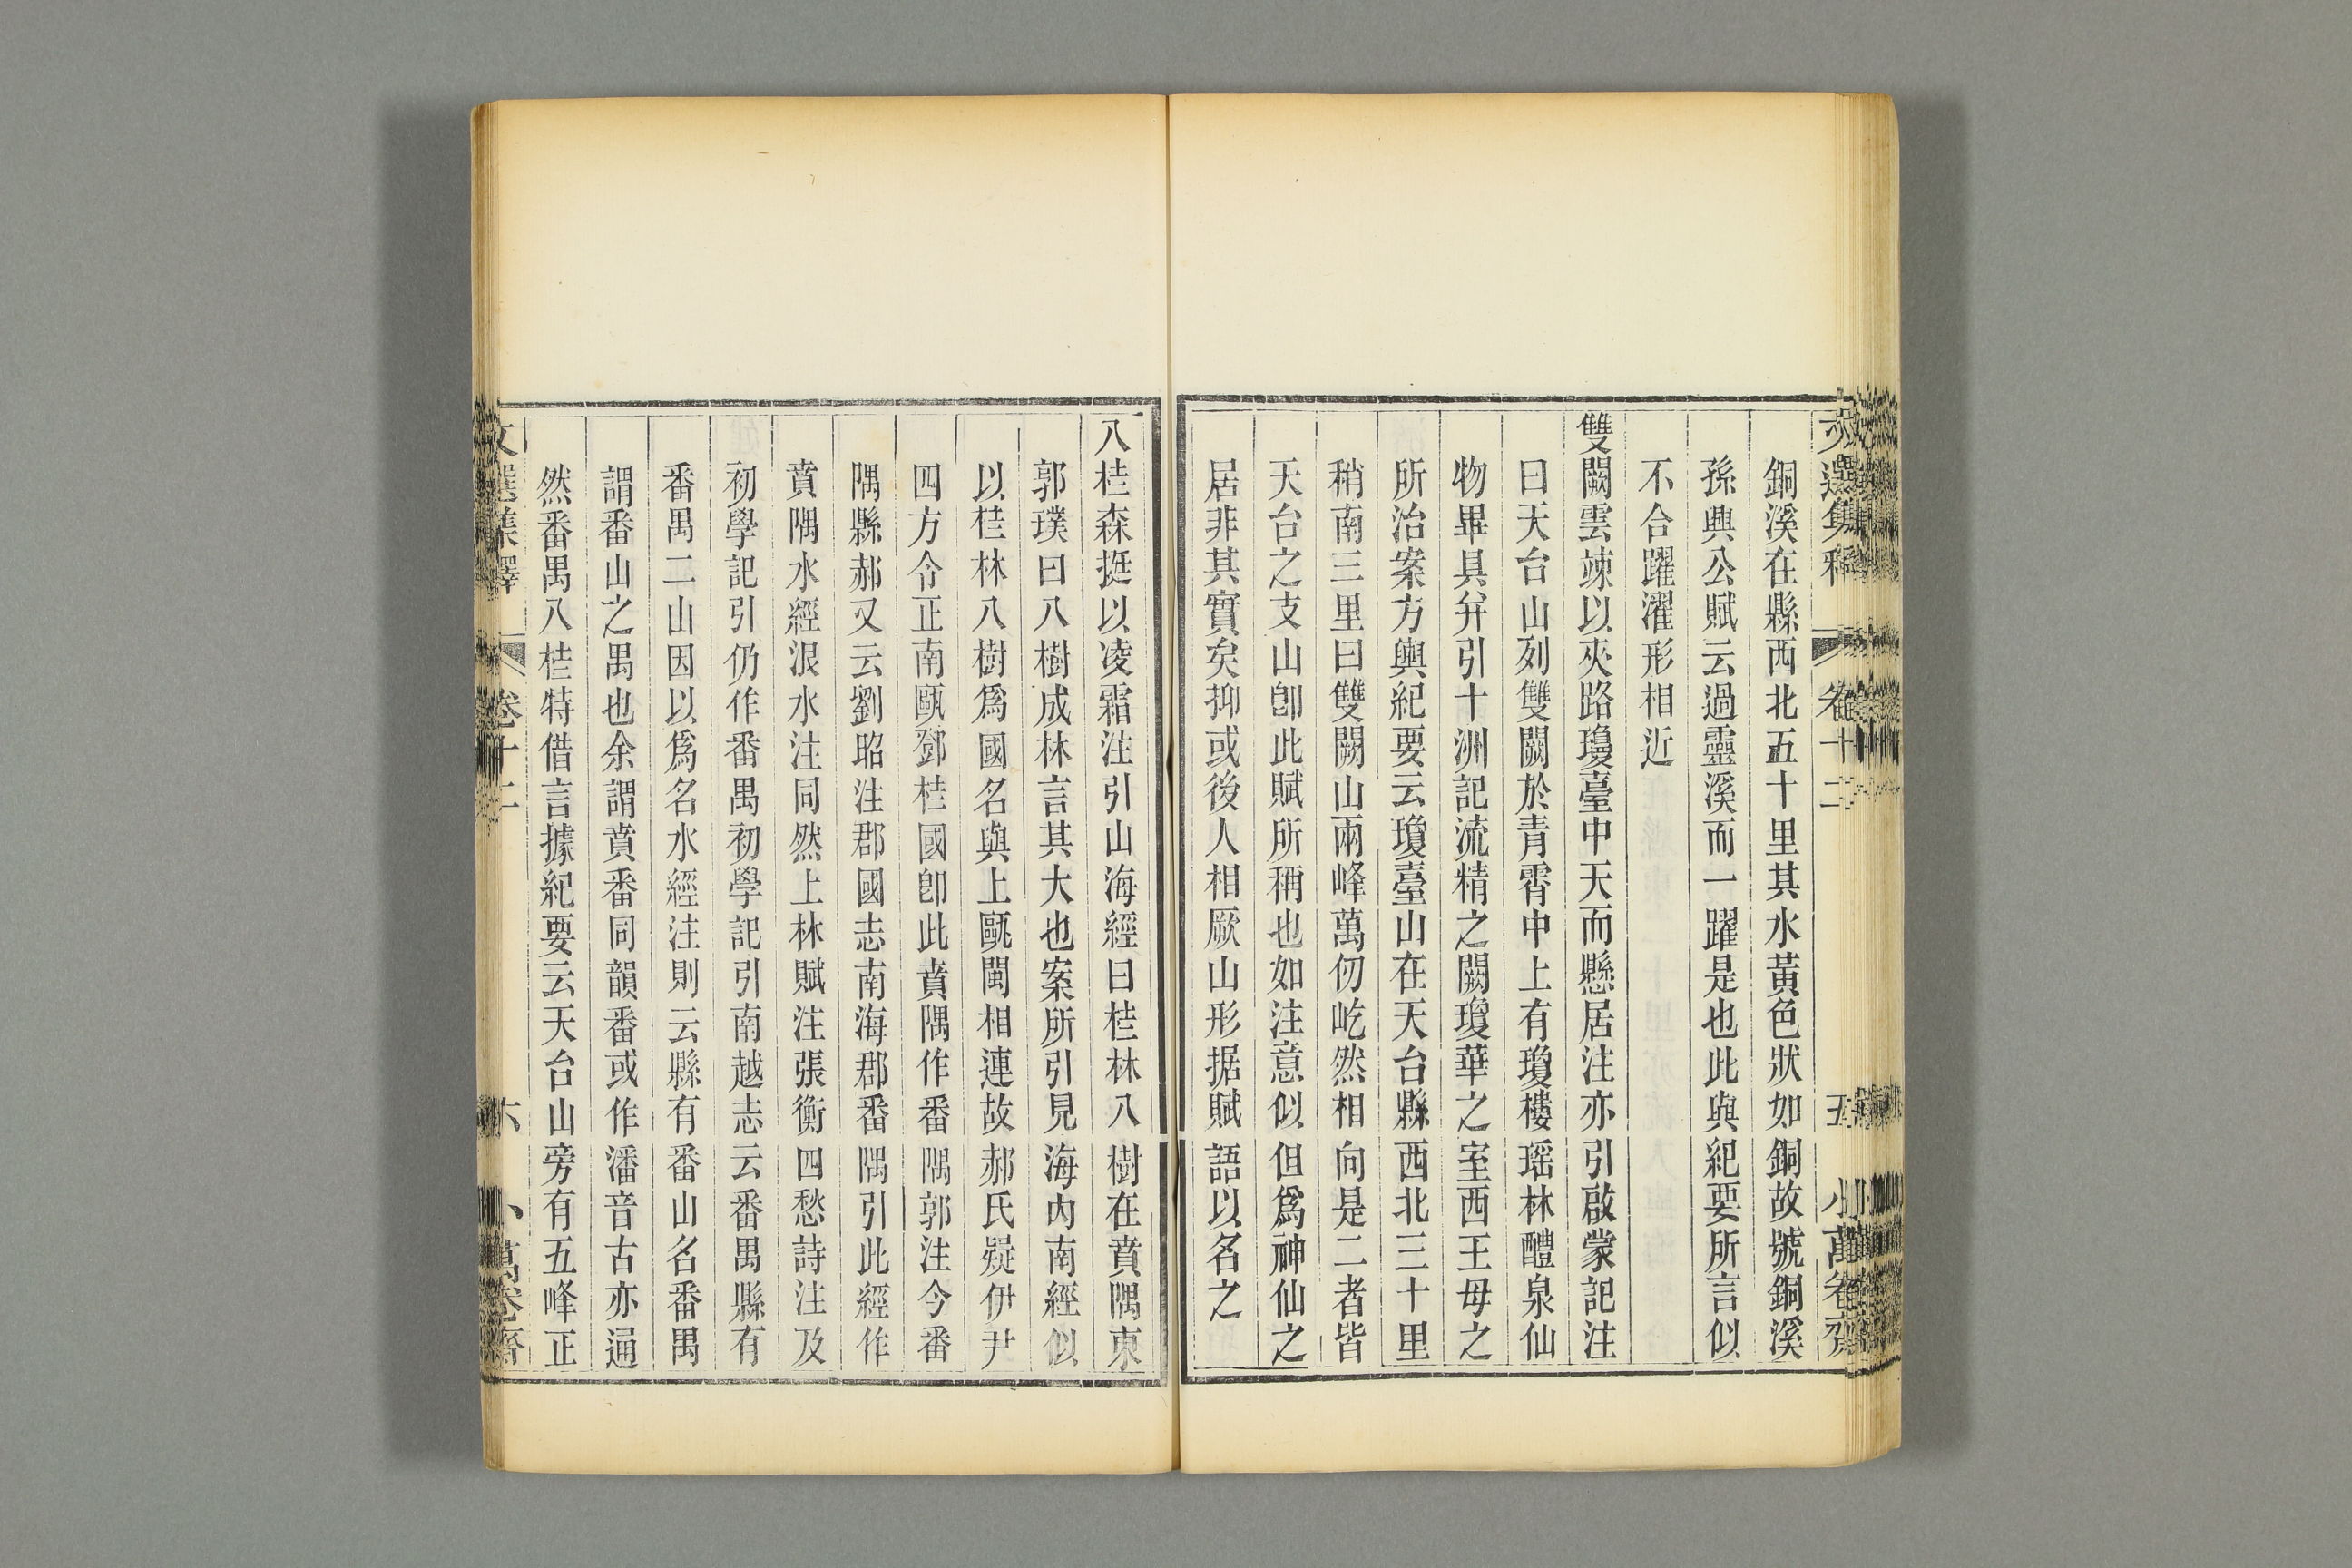 文選集釋 卷十二 五 小萬卷齋
銅溪在縣西北五十里其水黃色狀如銅故號銅溪
孫興公賦云過靈溪而一躍是也此與紀要所言似
不合躍濯形相近
雙闕雲竦以夾路瓊臺中天而懸居注亦引啟蒙記注
曰天台山列雙闕於青霄中上有瓊樓瑶林醴泉仙
物畢具并引十洲記流精之闕瓊華之室西王母之
所治案方輿紀要云瓊臺山在天台縣西北三十里
稍南三里曰雙闕山兩峰萬仞屹然相向是二者皆
天台之支山卽此賦所稱也如注意似但爲神仙之
居非其實矣抑或後人相厥山形据賦語以名之
八桂森挺以凌霜注引山海經曰桂林八樹在賁隅東
郭璞曰八樹成林言其大也案所引見海內南經似
以桂林八樹爲國名與上甌閩相連故郝氏疑伊尹
四方令正南甌鄧桂國卽此賁隅作番隅郭注今番
隅縣郝又云劉昭注郡國志南海郡番隅引此經作
賁隅水經泿水注同然上林賦注張衡四愁詩注及
初學記引仍作番禺初學記引南越志云番禺縣有
番禺二山因以爲名水經注則云縣有番山名番禺
謂番山之禺也余謂賁番同韻番或作潘音古亦通
然番禺八桂特借言據紀要云天台山旁有五峰正
文選集釋 卷十二 六 小萬卷齋